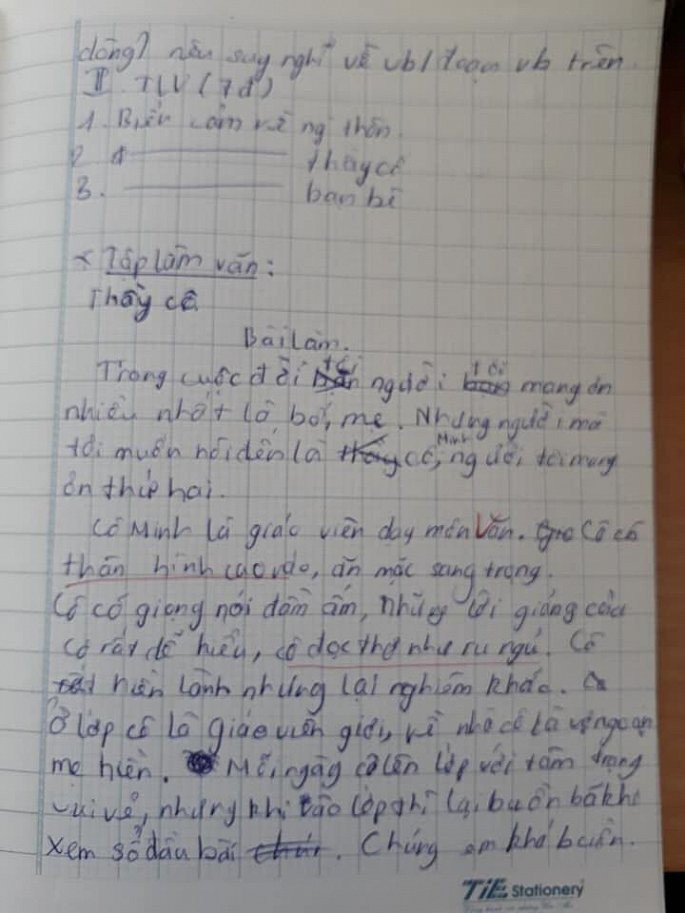 dòng) nêu suy nghĩ về vb/đoạn vb trên.
II. TLV (7đ)
1. Biểu cảm về ng thân
2. thầy cô
3. bạn bè
Tập làm văn:
Thầy cô
Bài làm.
Trong cuộc đời tôi người tôi mang ơn
nhiều nhất là bố, mẹ. Nhưng người mà
tôi muốn nói đến là cô Minh, người tôi mang
ơn thứ hai.
Cô Minh là giáo viên dạy môn Văn. Cô có
thân hình cao ráo, ăn mặc sang trọng.
Cô có giọng nói đầm ấm, những lời giảng của
cô rất dễ hiểu, cô đọc thơ như ru ngủ. Cô
hiền lành nhưng lại nghiêm khắc.
Ở lớp cô là giáo viên giỏi, về nhà cô là vợ ngoan
mẹ hiền. Mỗi ngày cô lên lớp với tâm trạng
vui vẻ, nhưng khi vào lớp thì lại buồn bã khi
xem sổ đầu bài. Chúng em khá buồn.
TiE Stationery